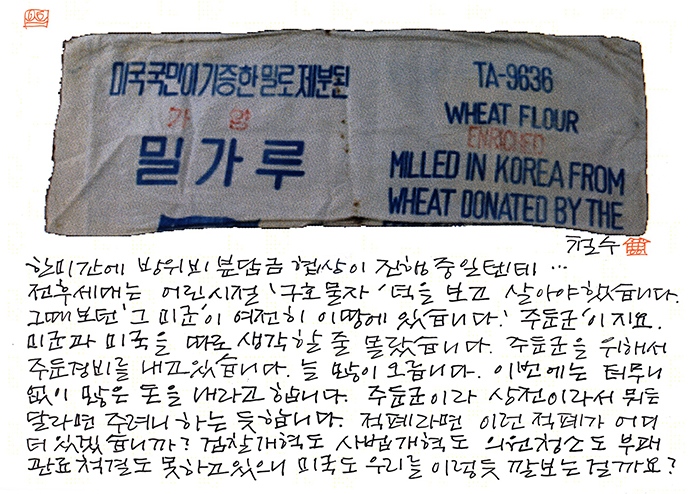 미국국민이기증한밀로제분된
가 영
밀가루
TA-9636
WHEAT FLOUR
ENRICHED
MILLED IN KOREA FROM
WHEAT DONATED BY THE
철수
한미간에 방위비 분담금 협상이 진행중일텐데 …
전후세대는 어린시절 '구호물자' 덕을 보고 살아야했습니다.
그때보던 '그 미군'이 여전히 이땅에 있습니다. '주둔군'이지요.
미군과 미국을 따로 생각할 줄 몰랐습니다. 주둔군을 위해서
주둔경비를 내고있습니다. 늘 많이 오릅니다. 이번에는 터무니
없이 많은 돈을 내라고 합니다. 주둔군이라 상전이라서 뭐든
달라면 주려니 하는 듯합니다. 적폐라면 이런 적폐가 어디
더 있겠습니까? 검찰개혁도 사법개혁도 의원청소도 부패
관료척결도 못하고있으니 미국도 우리를 이렇듯 깔보는 걸까요?